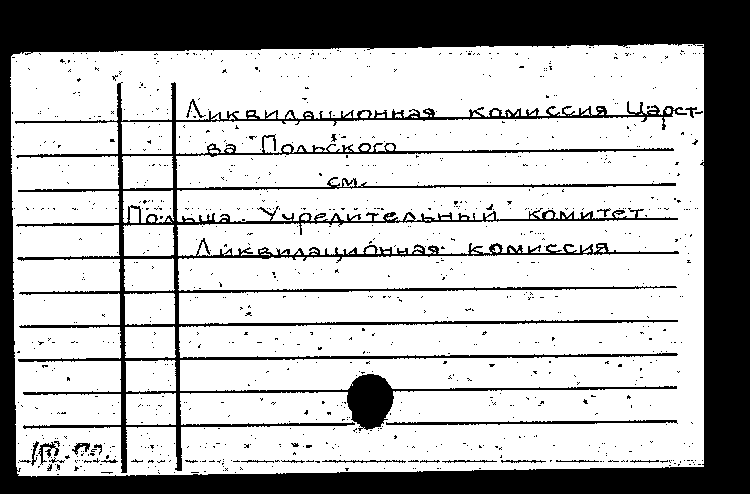 Ликвидационная комиссия Царст-
ва Польского
см.
Польша. Учредительный комитет.
Ликвидационная комиссия.